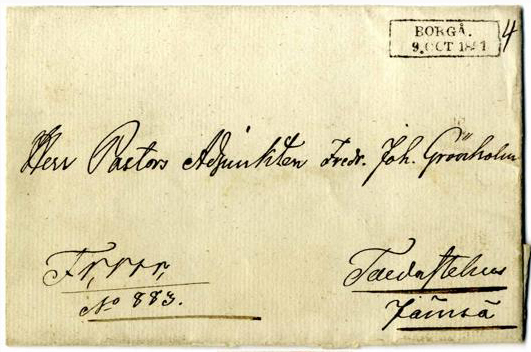 BORGÅ. 4
9. OCT 1841
Herr Pastors Adjunkten Fredr. Joh.
Tavastehus
No 883.
Jämsä